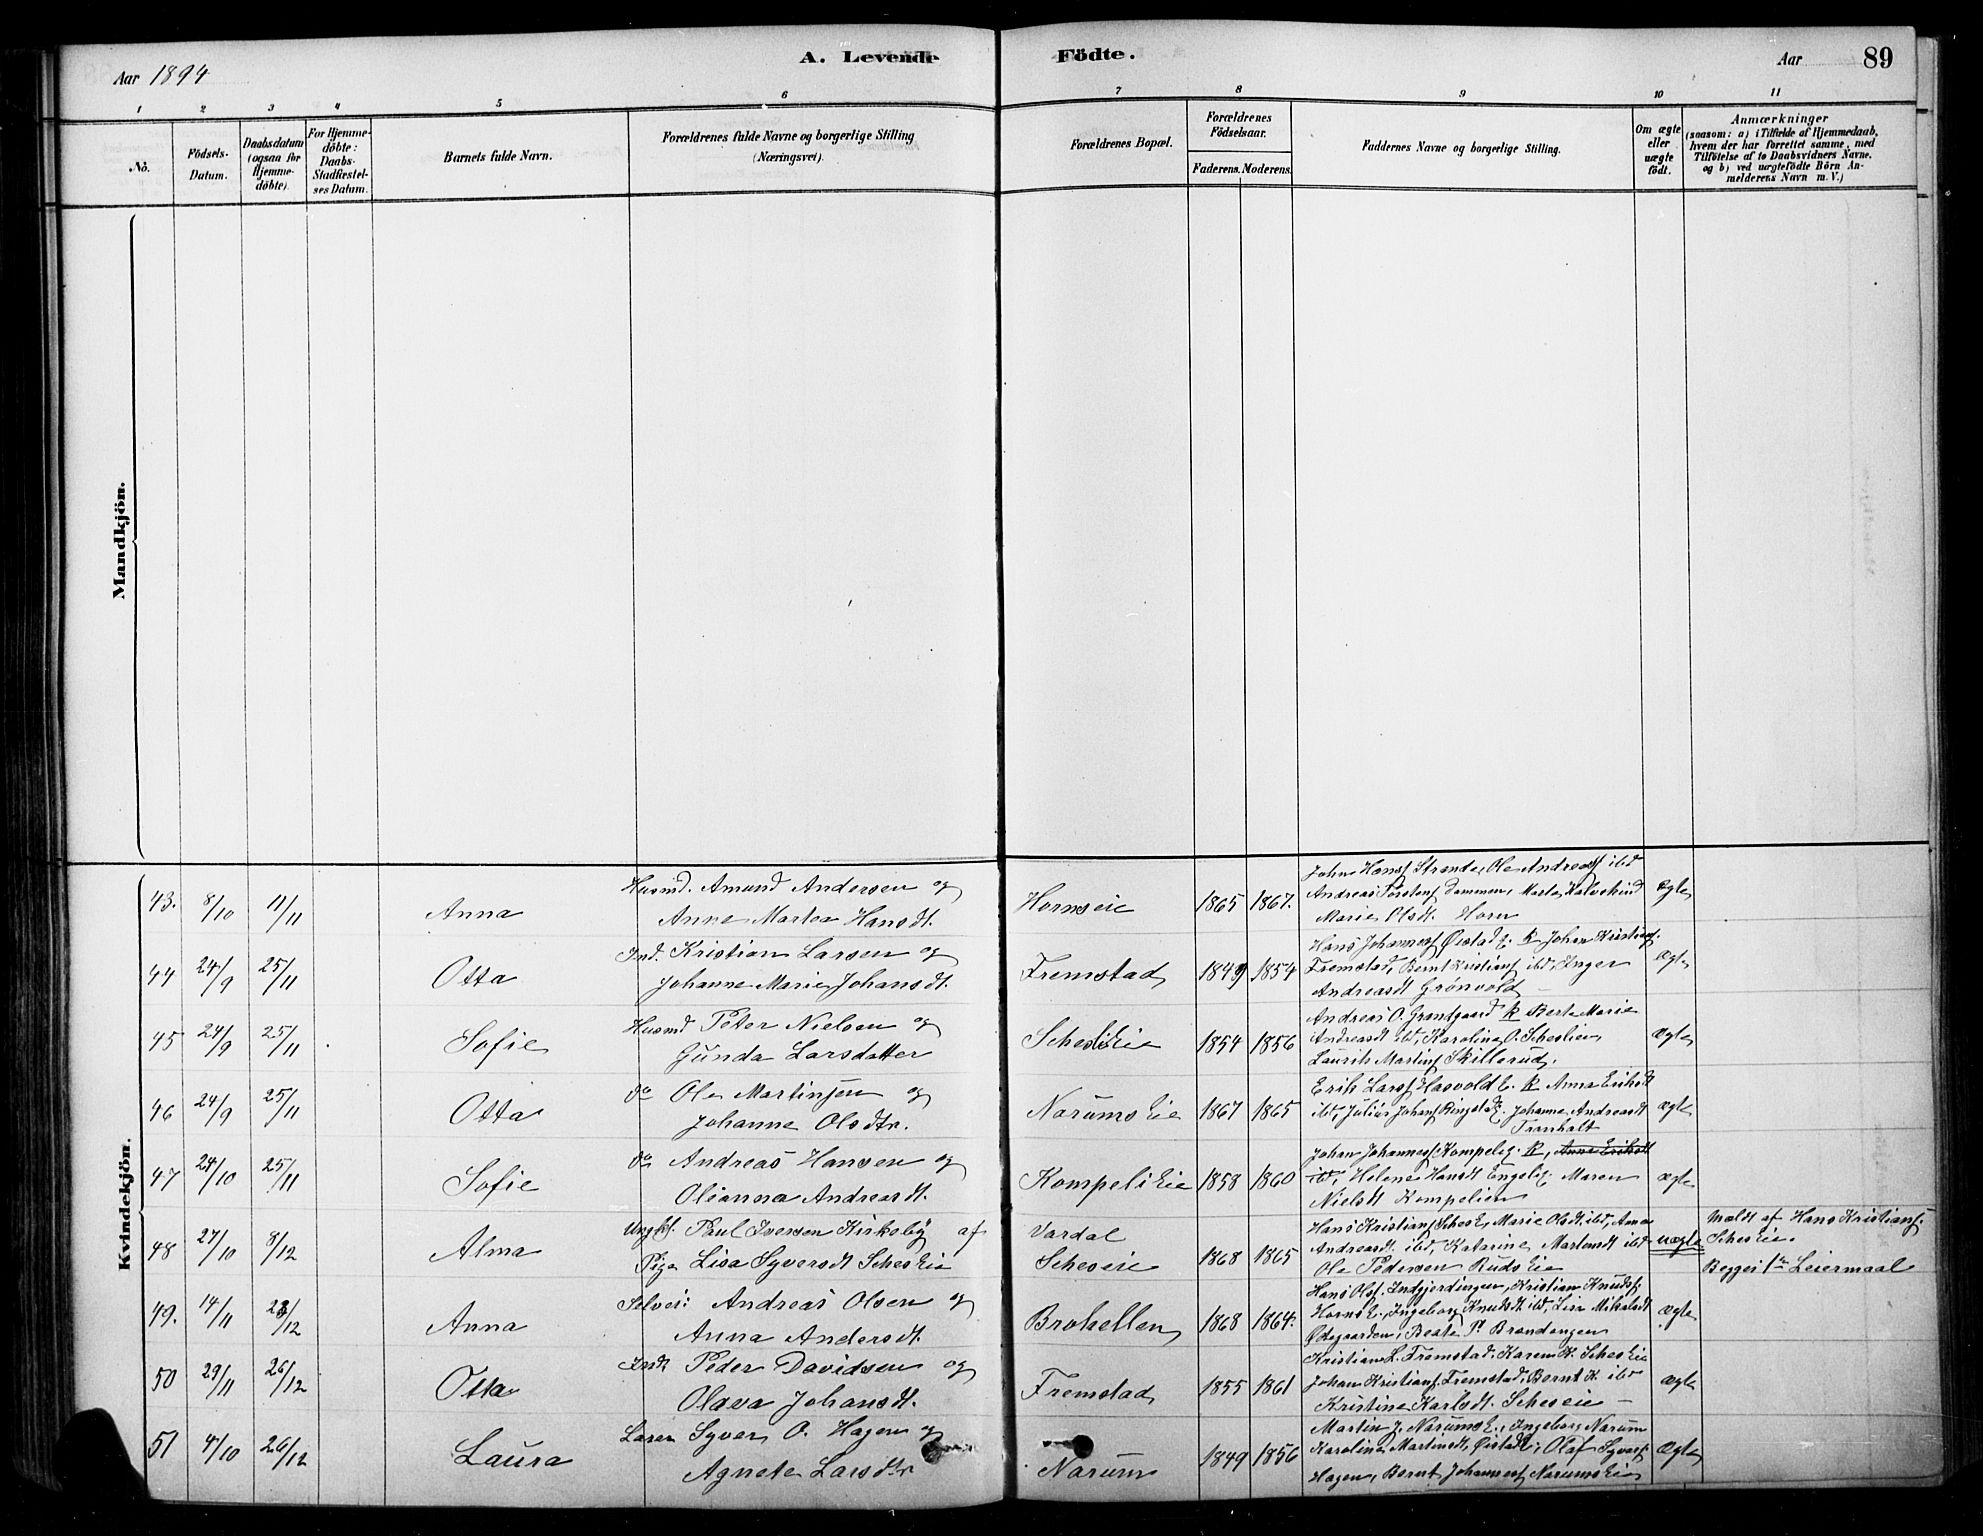 Aar 1894
A. Levende
Födte.
Aar
89
1 2 3 4 5 6 7 8 9 10 11
No.
Födsels-Datum.
Daabsdatum (ogsaa for Hjemme-döbte).
For Hjemme-döbte: Daabs-Stadfæstel-ses Datum.
Barnets fulde Navn.
Forældrenes fulde Navne og borgerlige Stilling (Næringsvei).
Forældrenes Bopæl.
Forældrenes Födselsaar.
Faderens. Moderens.
Faddernes Navne og borgerlige Stilling.
Om ægte eller uægte födt.
Anmærkninger (saasom: a) i Tilfælde af Hjemmedaab, hvem der har forrettet samme, med Tilföielse af to Daabsvidners Navne, og b) ved uægtefödte Börn An-melderens Navn m. V.)
Mandkjön.
Kvindekjön.
43. 8/10 11/11 Anna
Husmd. Amund Andersen og
Anne Martea Hansdt.
Hornseie 1865 1867.
John Hansf Strande, Ole Andreasf ibd
Andreas Torstensf Dammen, Marte Kalvehud
Marie Olsdt. Horn
ægte
44 24/9 25/11 Otta
Ind. Kristian Larsen og
Johanne Marie Johansdt.
Fremstad 1849 1854
Hans Johannesf Øistad E. k Johan Kristiansf.
Fremstad, Bernt Kristiansf ibd, Inger
Andreasdt Grönvold
ægte
45 24/9 25/11 Sofie
Husmd Peter Nielsen og
Gunda Larsdatter
SchesliEie 1854 1856
Andreas O. Grantgaard k Berte Marie
Andreasdt ibd, Karoline O. Scheslien
Laurits Martinsf Skillerud.
ægte
46 24/9 25/11 Otta
do Ole Martinsen og
Johanne Olsdtr.
NarumsEie 1867 1865
Erik Larsf Hasvold E. k Anna Eriksdt
ibd, Julius Johansf Ringstad E. Johanne Andreasdt
Tranholt
ægte
47 24/10 25/11 Sofie
do Andreas Hansen og
Olianna Andreasdt.
KompeliEie 1858 1860
Johan Johannesf. Kompelig. k, Anne Eriksdt
ibd, Helene Hansdt Engelig. Maren
Nielsdt Kompelien
ægte
48 27/10 8/12 Alma
Ungkf. Paul Iversen Kirkeby af
Pige Lisa Syversdt ScheseEie
Vardal
Scheseie 1868 1865
Hans Kristiansf Sches E, Marie Olsdt. ibd, Anne
Andreasdt ibd, Katarine Martensdt ibd
Ole Pedersen RudsEie
uægte
Meldt af Hans Kristiansf.
SchesEie.
Begges 1ste Leiermaal
49. 14/11 23/12 Anna
Selvei: Andreas Olsen og
Anna Andersdt.
Brohellen 1868 1864.
Hans Olsf. Indgjerdingen, Kristian Knudsf.
Horns E., Ingeborg Knutsdt ibd, Lise Mikelsdt
Ødegaarden, Beate P. Brændengen
ægte
50 29/11 26/12 Otta
Indt Peder Davidsen og
Olava Johansdt.
Fremstad 1855 1861
Kristian L. Fremstad, Karen K. SchesEie
Johan Kristiansf. Fremstad, Bernt K ibd
Kristine Karlsdt. Scheseie
ægte
51 4/10 26/12 Laura
Lærer Syver O. Hagen og
Agnete Larsdtr
Narum 1849 1856
Martin J. Narums E., Ingeborg Narum
Karoline Martinsdt, Øistad E., Olaf Syversf.
Hagen, Bernt Johannesf NarumsEie
ægte